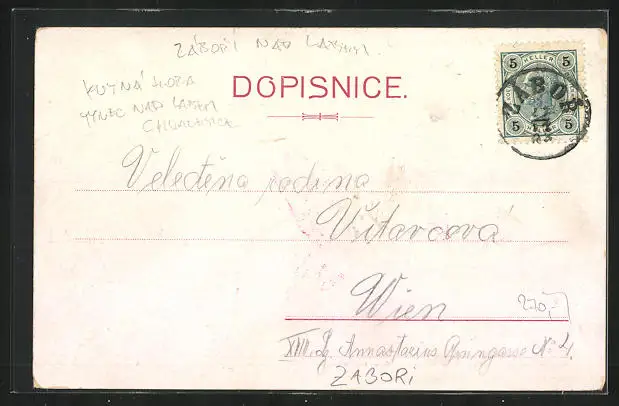 ZÁBOŘÍ NAD LABEM
KUTNÁ HORA
TÝNEC NAD LABEM
DOPISNICE.
5 HELLER 5
ZÁBOŘ
5 5
Veleděna rodina
Vitavcová
Wien
270,-
XIII. Bz. Anastasius Grüngasse No 4.
ZÁBOŘÍ